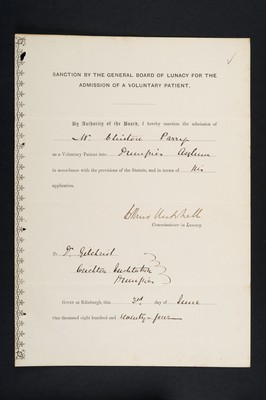 SANCTION BY THE GENERAL BOARD OF LUNACY FOR THE
ADMISSION OF A VOLUNTARY PATIENT.
By Authority of the Board, I hereby sanction the admission of
Mr Clinton Parry
as a Voluntary Patient into Dumfries Asylum
in accordance with the provisions of the Statute, and in terms of his
application.
Commissioner in Lunacy.
To Dr Gilchrist
Crichton Institution
Dumfries
GIVEN at Edinburgh, this 3rd day of June
One thousand eight hundred and seventy-four